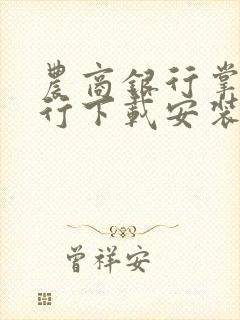 農商銀行掌
行下載安裝
曾祥安